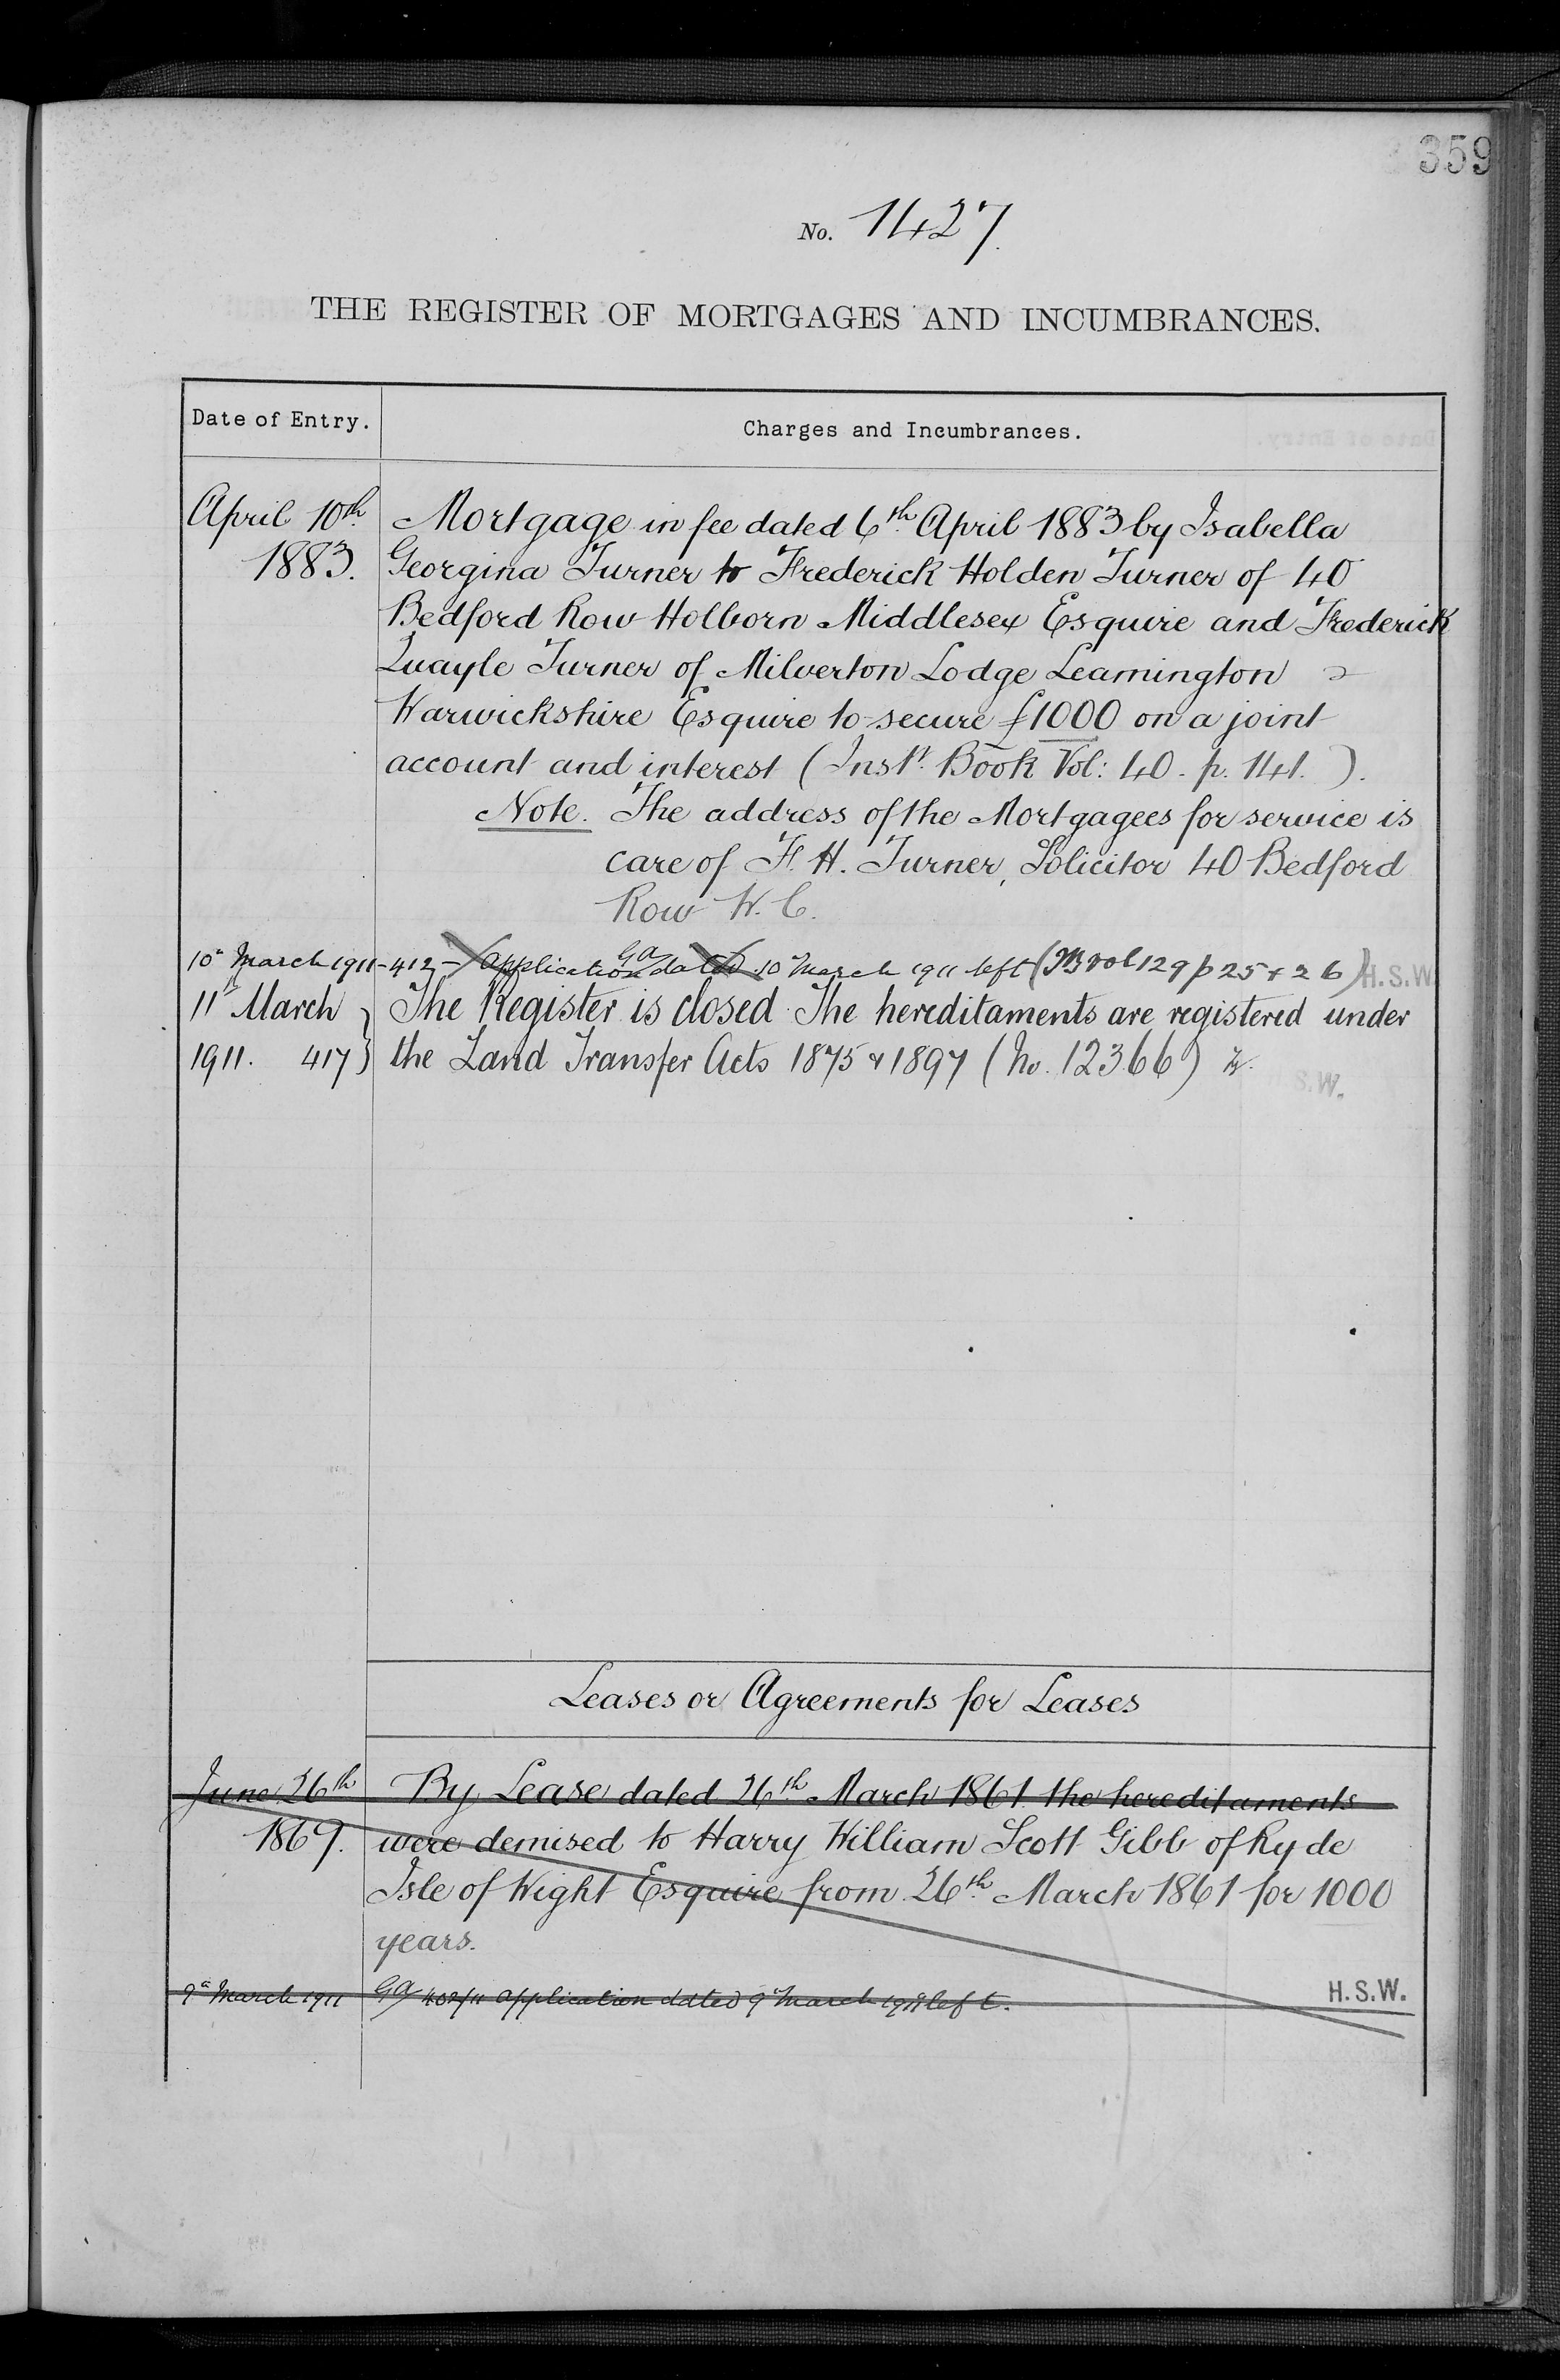 359
No. 1427.
THE REGISTER OF MORTGAGES AND INCUMBRANCES.
Date of Entry. Charges and Incumbrances.
April 10th Mortgage in fee dated 6th April 1883 by Isabella
1883. Georgina Turner to Frederick Holden Turner of 40
Bedford Row Holborn Middlesex Esquire and Frederick
Quayle Turner of Milverton Lodge Leamington
Warwickshire Esquire to secure £1000 on a joint
account and interest (Inst. Book Vol: 40. p. 141. ).
Note. The address of the Mortgagees for service is
care of F. H. Turner, Solicitor 40 Bedford
Row W.C.
10th March 1911 - 412 - Application GA dated 10 March 1911 left (IB vol 129 p 25 + 26) H.S.W.
11th March } The Register is closed. The hereditaments are registered under
1911. 417 } the Land Transfer Acts 1875 & 1897 (No. 12366)
S.W.
Leases or Agreements for Leases
June 26th By Lease dated 26th March 1861 the hereditaments
1869. were demised to Harry William Scott Gibb of Ryde
Isle of Wight Esquire from 26th March 1861 for 1000
years.
9th March 1911 GA 402/11 Application dated 9 March 1911 left. H.S.W.